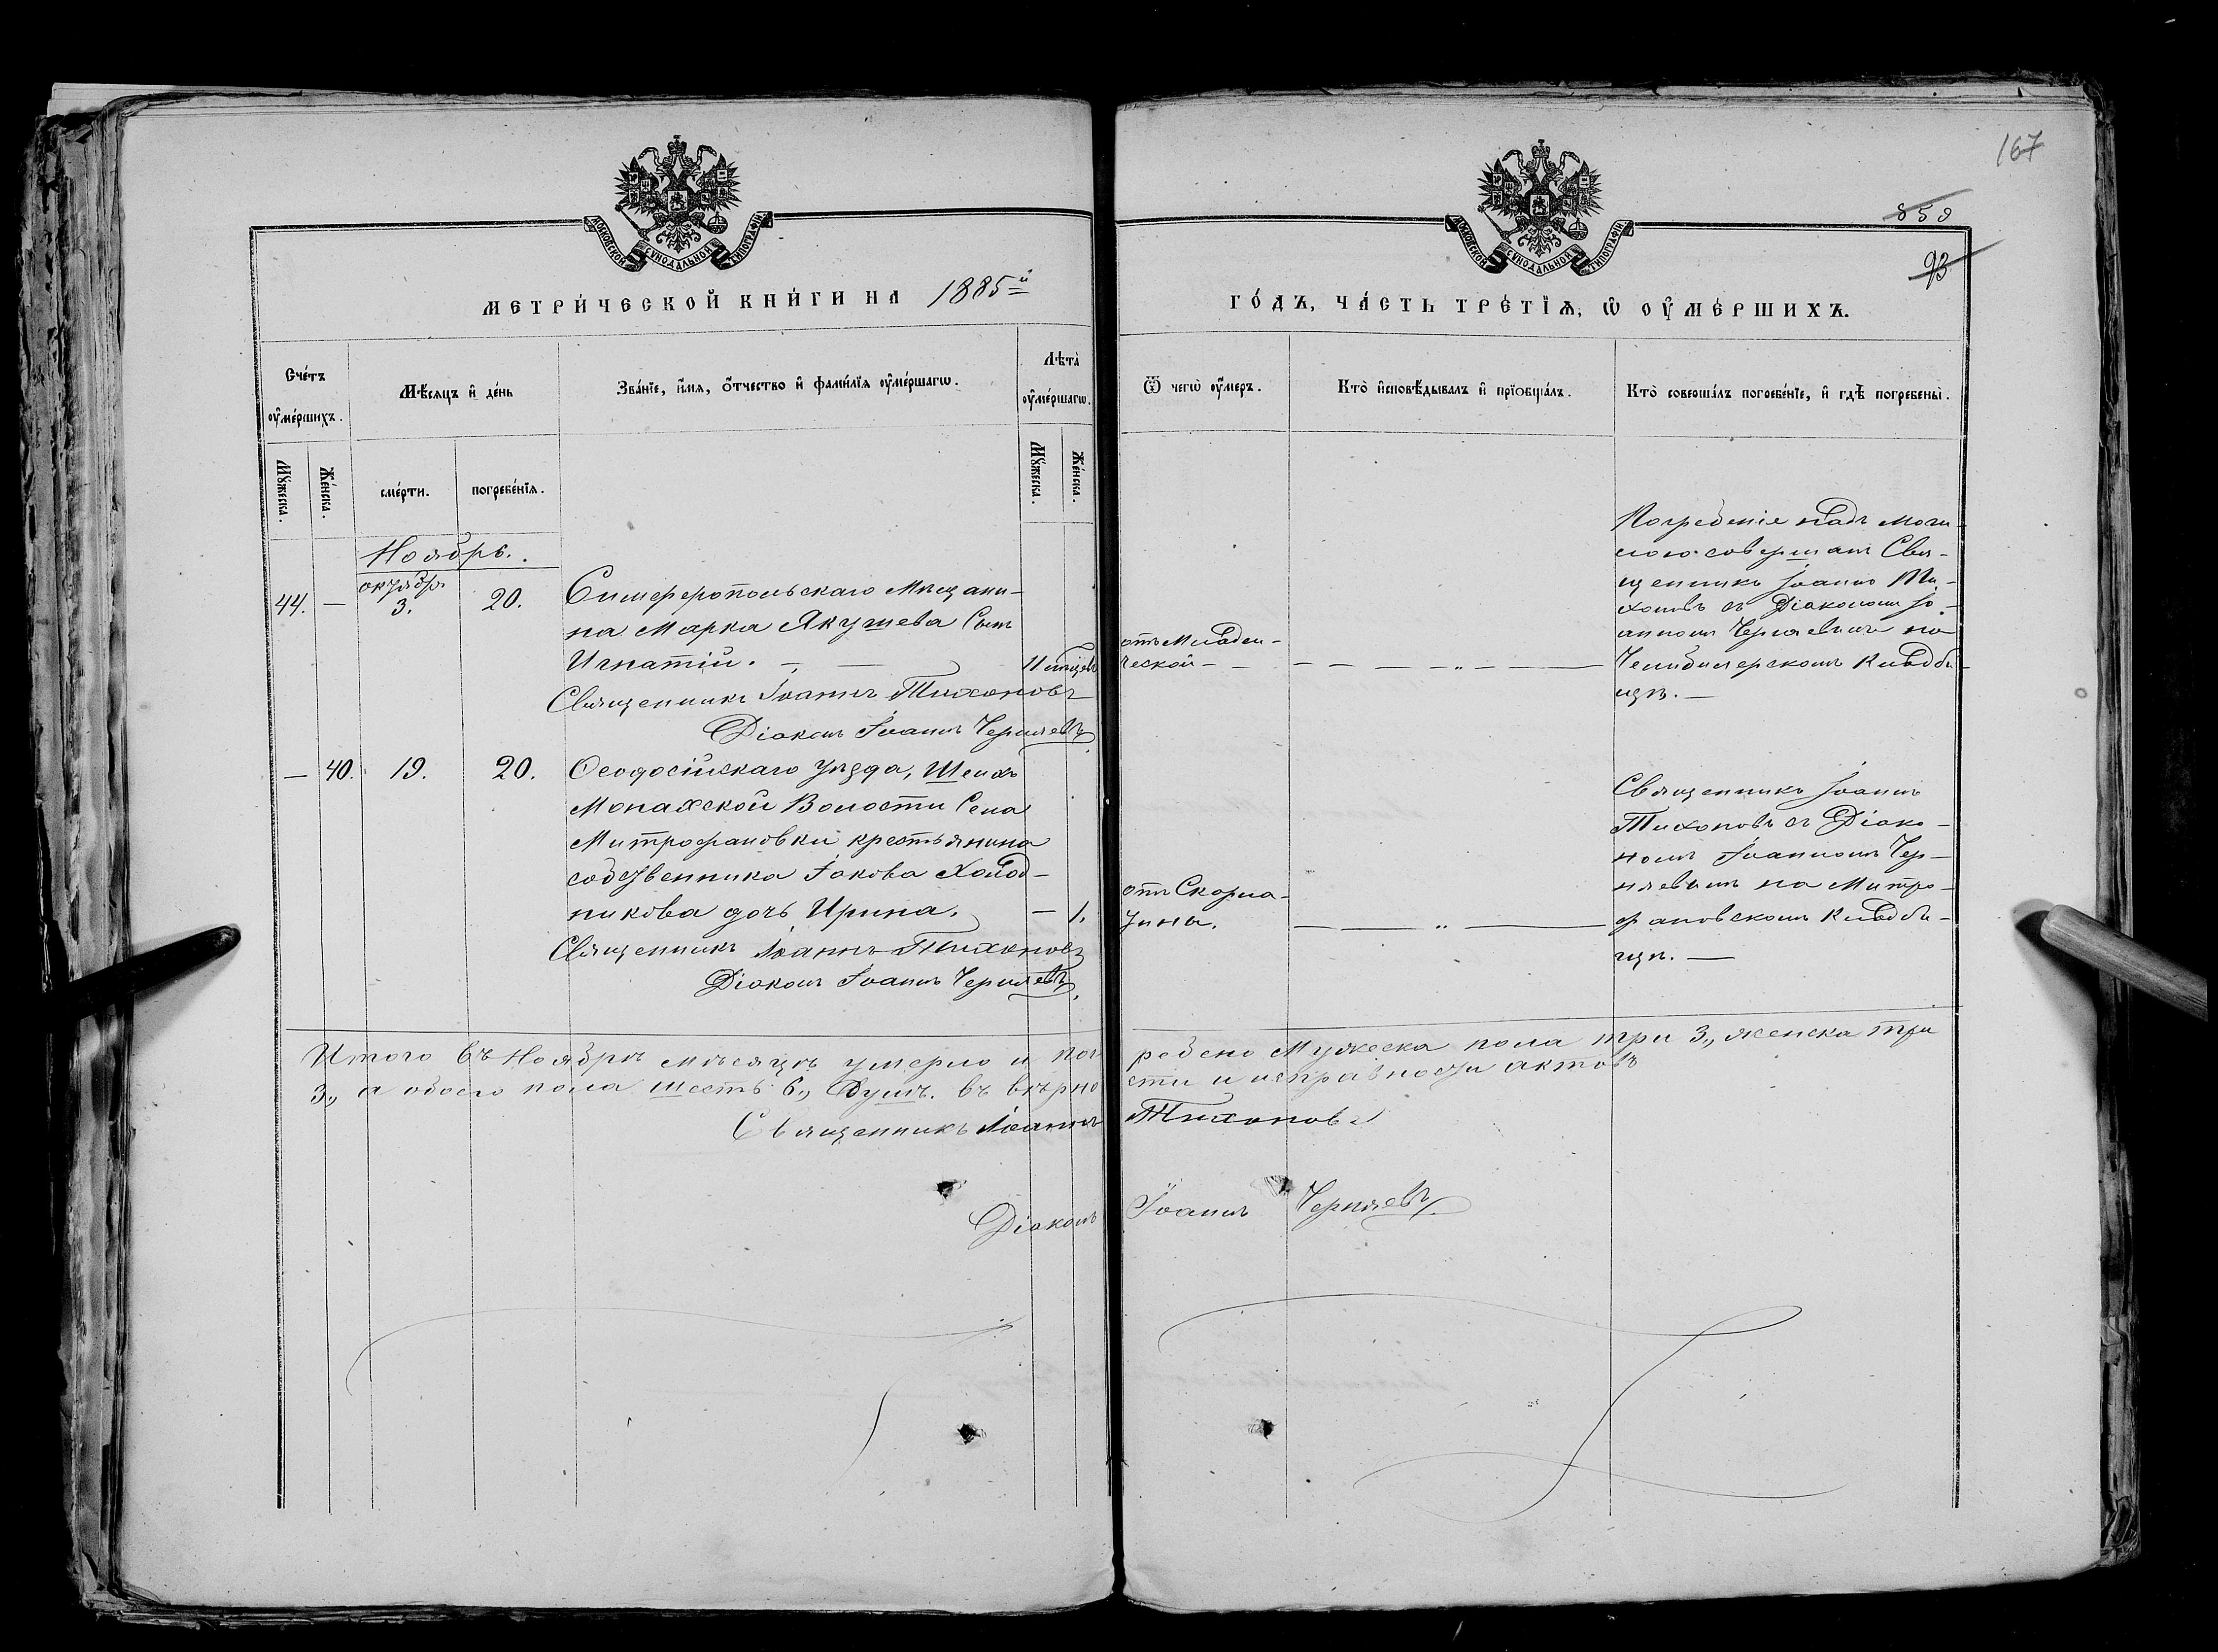 167
859
93
МОСКОВСКОЙ СУНОДАЛЬНОЙ ТИПОГРАФІИ
МОСКОВСКОЙ СУНОДАЛЬНОЙ ТИПОГРАФІИ
МЕТРИ́ЧЕСКОЙ КНИ́ГИ НА 1885й
ГО́ДЪ, ЧА́СТЬ ТРЕ́ТІѦ, Ѡ ОУ҆МЕ́РШИХЪ.
Сче́тъ оу҆ме́ршихъ.
Мѣ́сяцъ и҆ де́нь
Зва́нїе, и҆́мя, ѻ҆́тчество и҆ фами́лїя оу҆ме́ршагѡ.
Лѣ́та оу҆ме́ршагѡ.
Ѿ чегѡ̀ оу҆́меръ.
Кто̀ и҆сповѣ́дывалъ и҆ прїѡбща́лъ.
Кто̀ соверша́лъ погребе́нїе, и҆ гдѣ̀ погребены̀.
Мꙋ́жеска.
Же́нска.
сме́рти.
погребе́нїя.
Мꙋ́жеска.
Же́нска.
Ноябрь.
октября
44. — 3. 20. Симферопольскаго Мѣщани-
на Марка Якушева Сынъ
Игнатій. —
Священникъ Іоаннъ Тихоновъ
Діаконъ Іоаннъ Черняевъ
отъ Младен-
ческой —
Погребеніе надъ моги-
лою совершалъ Свя-
щенникъ Іоаннъ Ти-
хоновъ съ Діакономъ Іо-
анномъ Черняевымъ на
Кладби-
щѣ. —
— 40. 19. 20. Ѳеодосійскаго уѣзда, Шейхъ
Монахской Волости Села
Митрофановки крестьянина
собственника Іакова Холод-
никова дочь Ирина. — 1.
Священникъ Іоаннъ Тихоновъ
Діаконъ Іоаннъ Черняевъ
отъ Скорла-
тины.
Священникъ Іоаннъ
Тихоновъ съ Діако-
номъ Іоанномъ Чер-
няевымъ на Митро-
фановскомъ Кладби-
щѣ. —
Итого въ Ноябрѣ мѣсяцѣ умерло и погребено Мужеска пола три 3., женска три
3., а обоего пола шесть 6., душъ. въ вѣрности и исправности актовъ
Священникъ Іоаннъ Тихоновъ
Діаконъ Іоаннъ Черняевъ